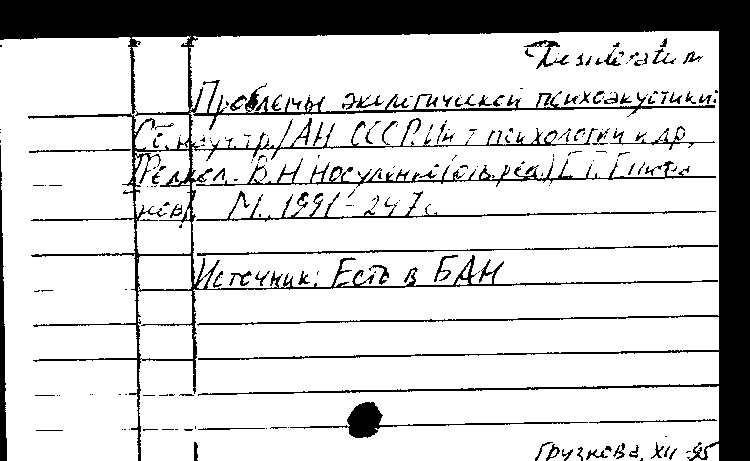 Desideratum
Проблемы экологической психоакустики:
Сб. науч. тр. / АН СССР. Ин-т психологии и др.
Редкол. В.Н. Носуленко (отв. ред.), Е.Г. Епифа
нов. М., 1991 - 247 с.
Источник: Есть в БАН
Грузнова, XII-95